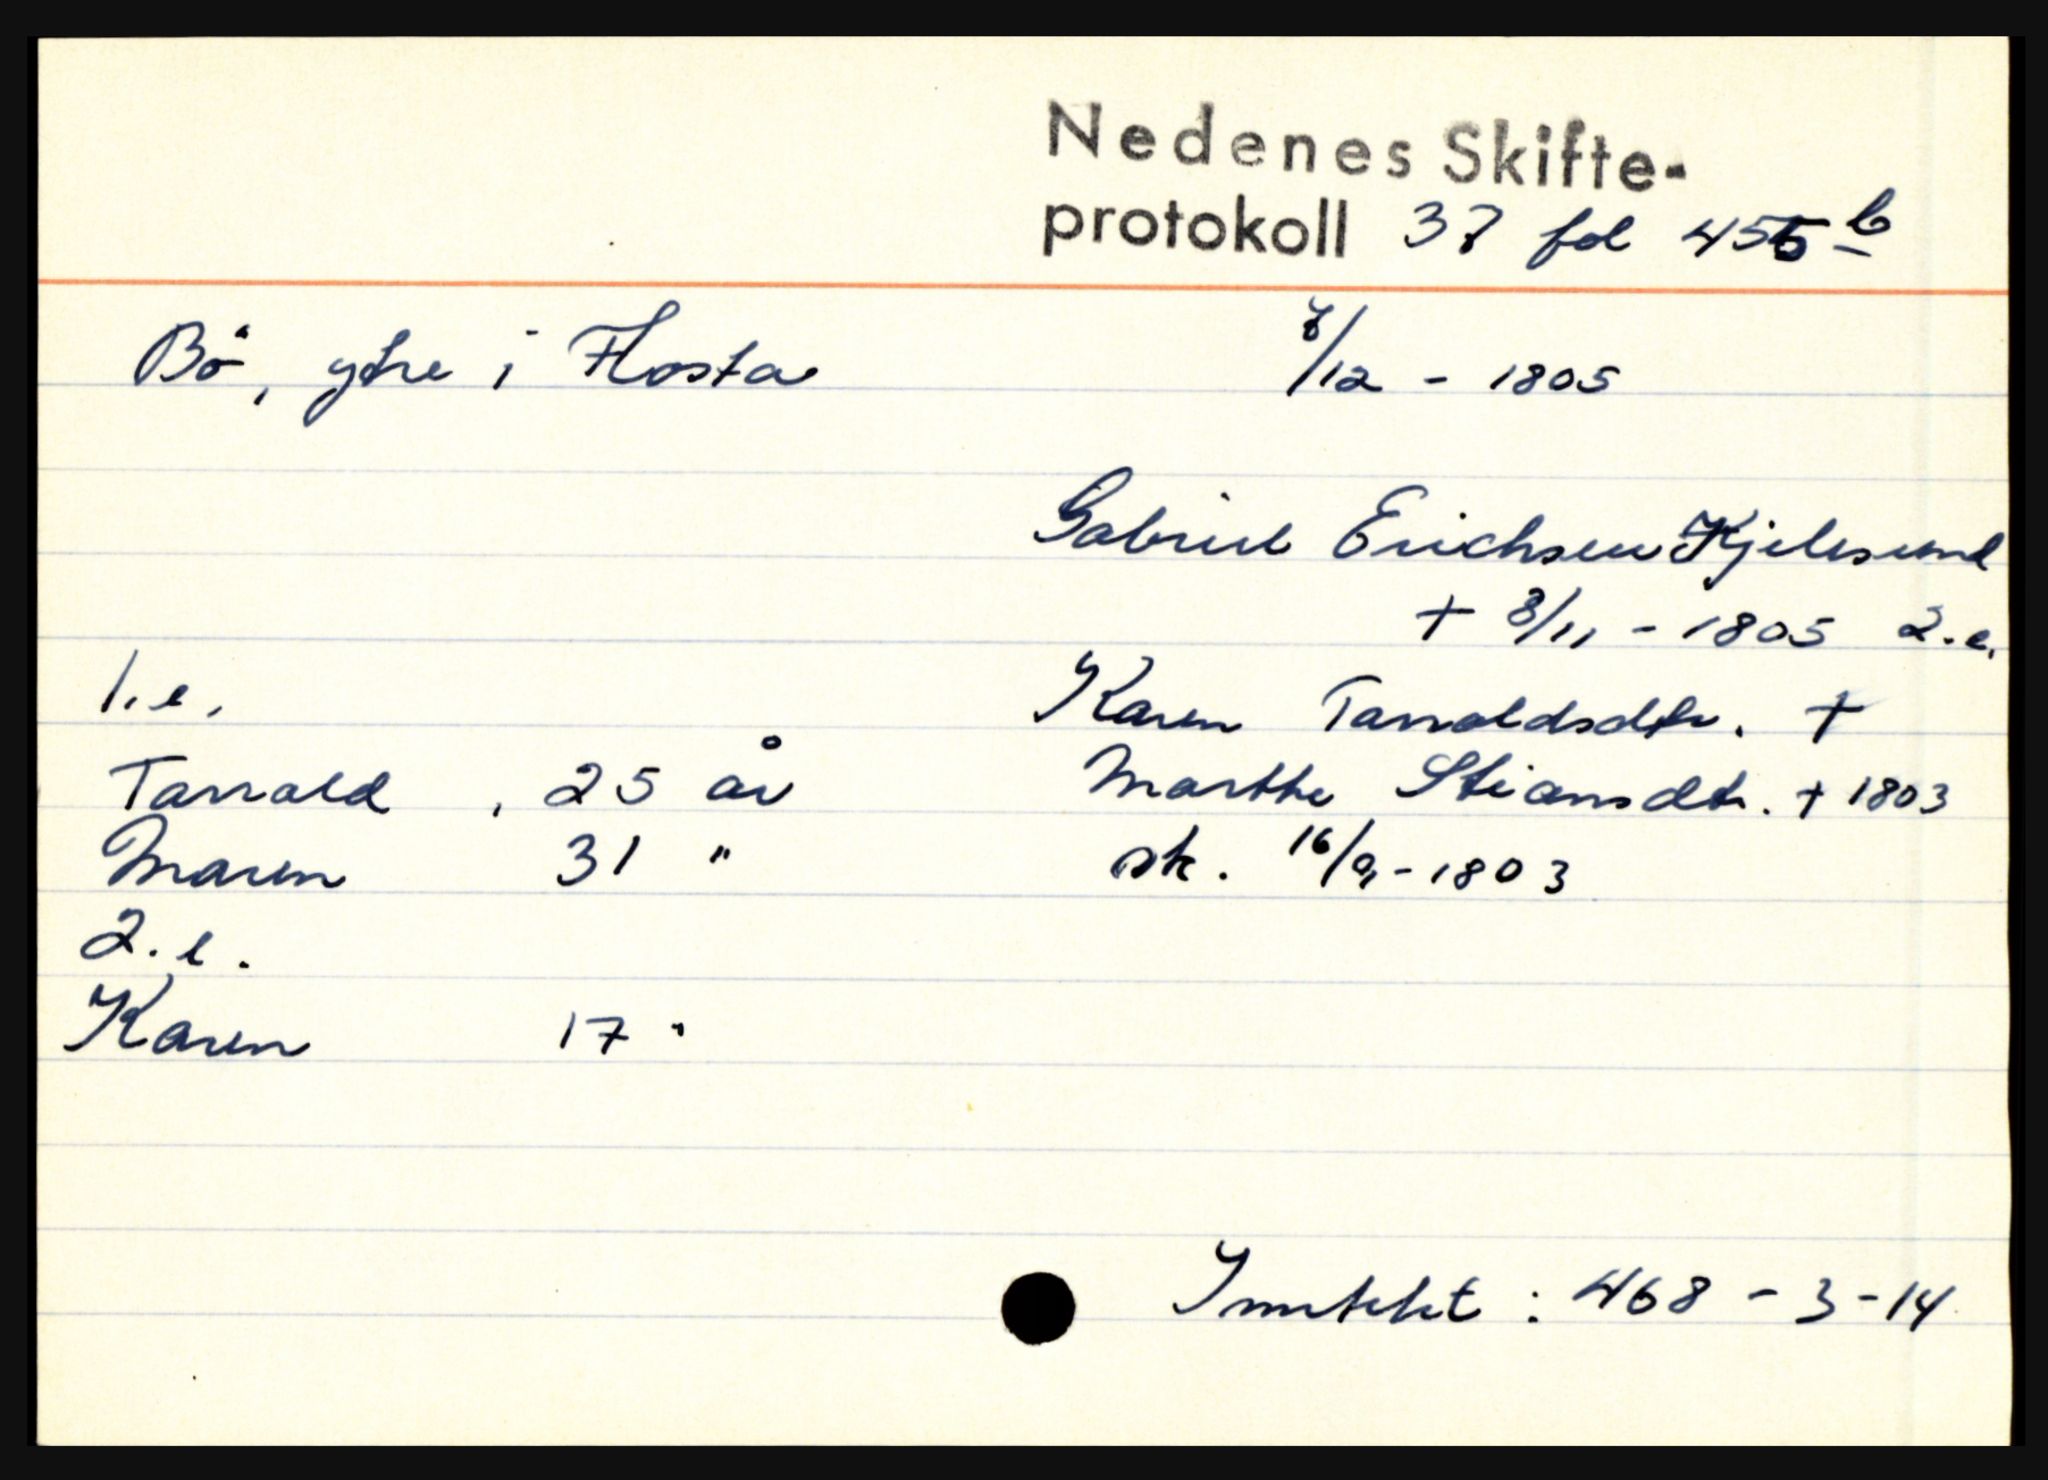 Nedenes Skifte-
protokoll 37 fol 455 b
Bö, ytre i Flosta 7/12 - 1805
Gabriel Erichsen Kjelesund
+ 8/11 - 1805 2.e.
1.e. Karen Tarraldsdtr. +
Tarrald, 25 år Marthe Stiansdtr. + 1803
Maren 31 " sk. 16/9 - 1803
2.e.
Karen 17 "
Inntekt : 468 - 3 - 14